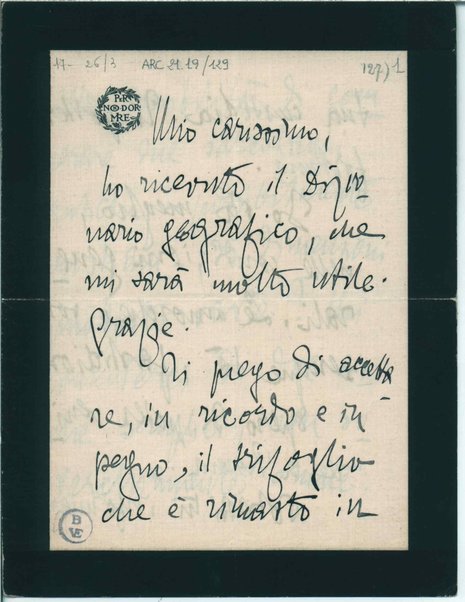 17- 26/3 ARC 21.19/129 127) 1
PER
NON DOR
MIRE
Mio carissimo,
ho ricevuto il Dizio
nario geografico, che
mi sarà molto utile.
Grazie.
Ti prego di accetta
re, in ricordo e in
pegno, il trifoglio
che è rimasto in
BVE